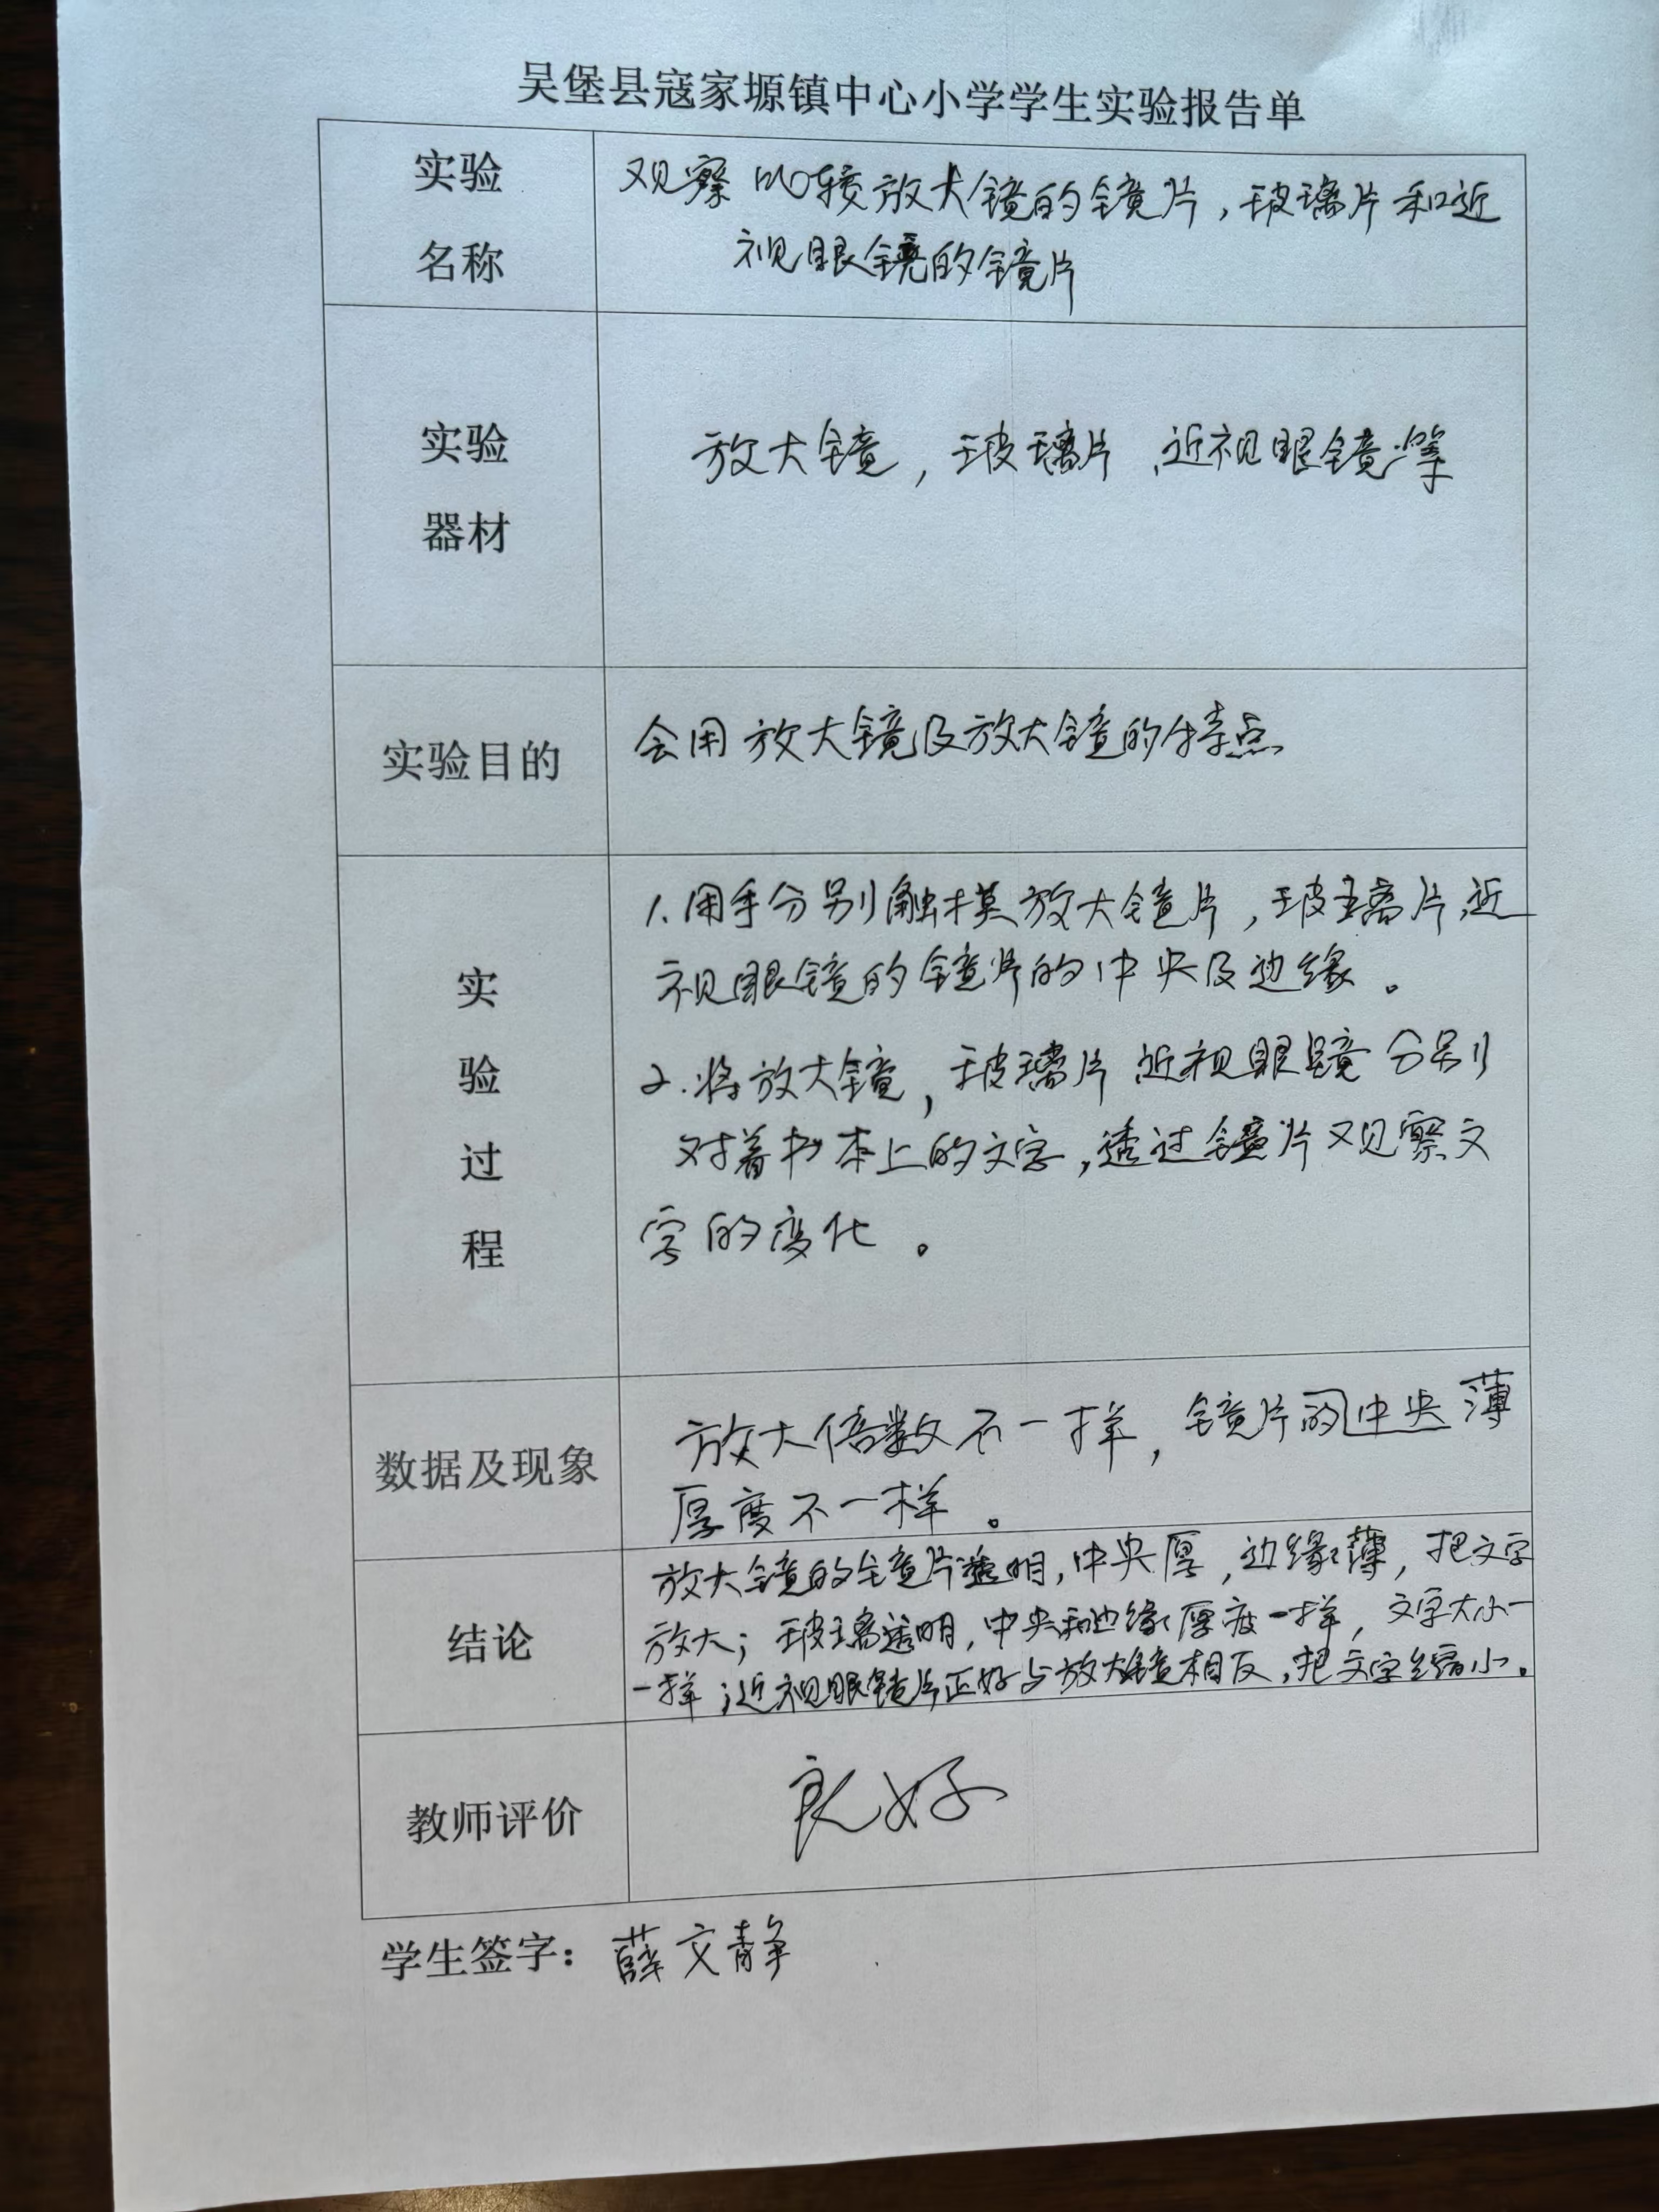 吴堡县寇家塬镇中心小学学生实验报告单
实验
名称
观察比较放大镜的镜片,玻璃片和近
视眼镜的镜片
实验
器材
放大镜,玻璃片、近视眼镜等
实验目的
会用放大镜及放大镜的特点
实
验
过
程
1.用手分别触摸放大镜片,玻璃片、近
视眼镜的镜片的中央及边缘。
2.将放大镜,玻璃片、近视眼镜分别
对着书本上的文字,透过镜片观察文
字的变化。
数据及现象
放大倍数不一样,镜片的中央薄
厚度不一样。
结论
放大镜的镜片透明,中央厚,边缘薄,把文字
放大;玻璃透明,中央和边缘厚度一样,文字大小一
一样;近视眼镜片正好与放大镜相反,把文字缩小。
教师评价
良好
学生签字:薛文静